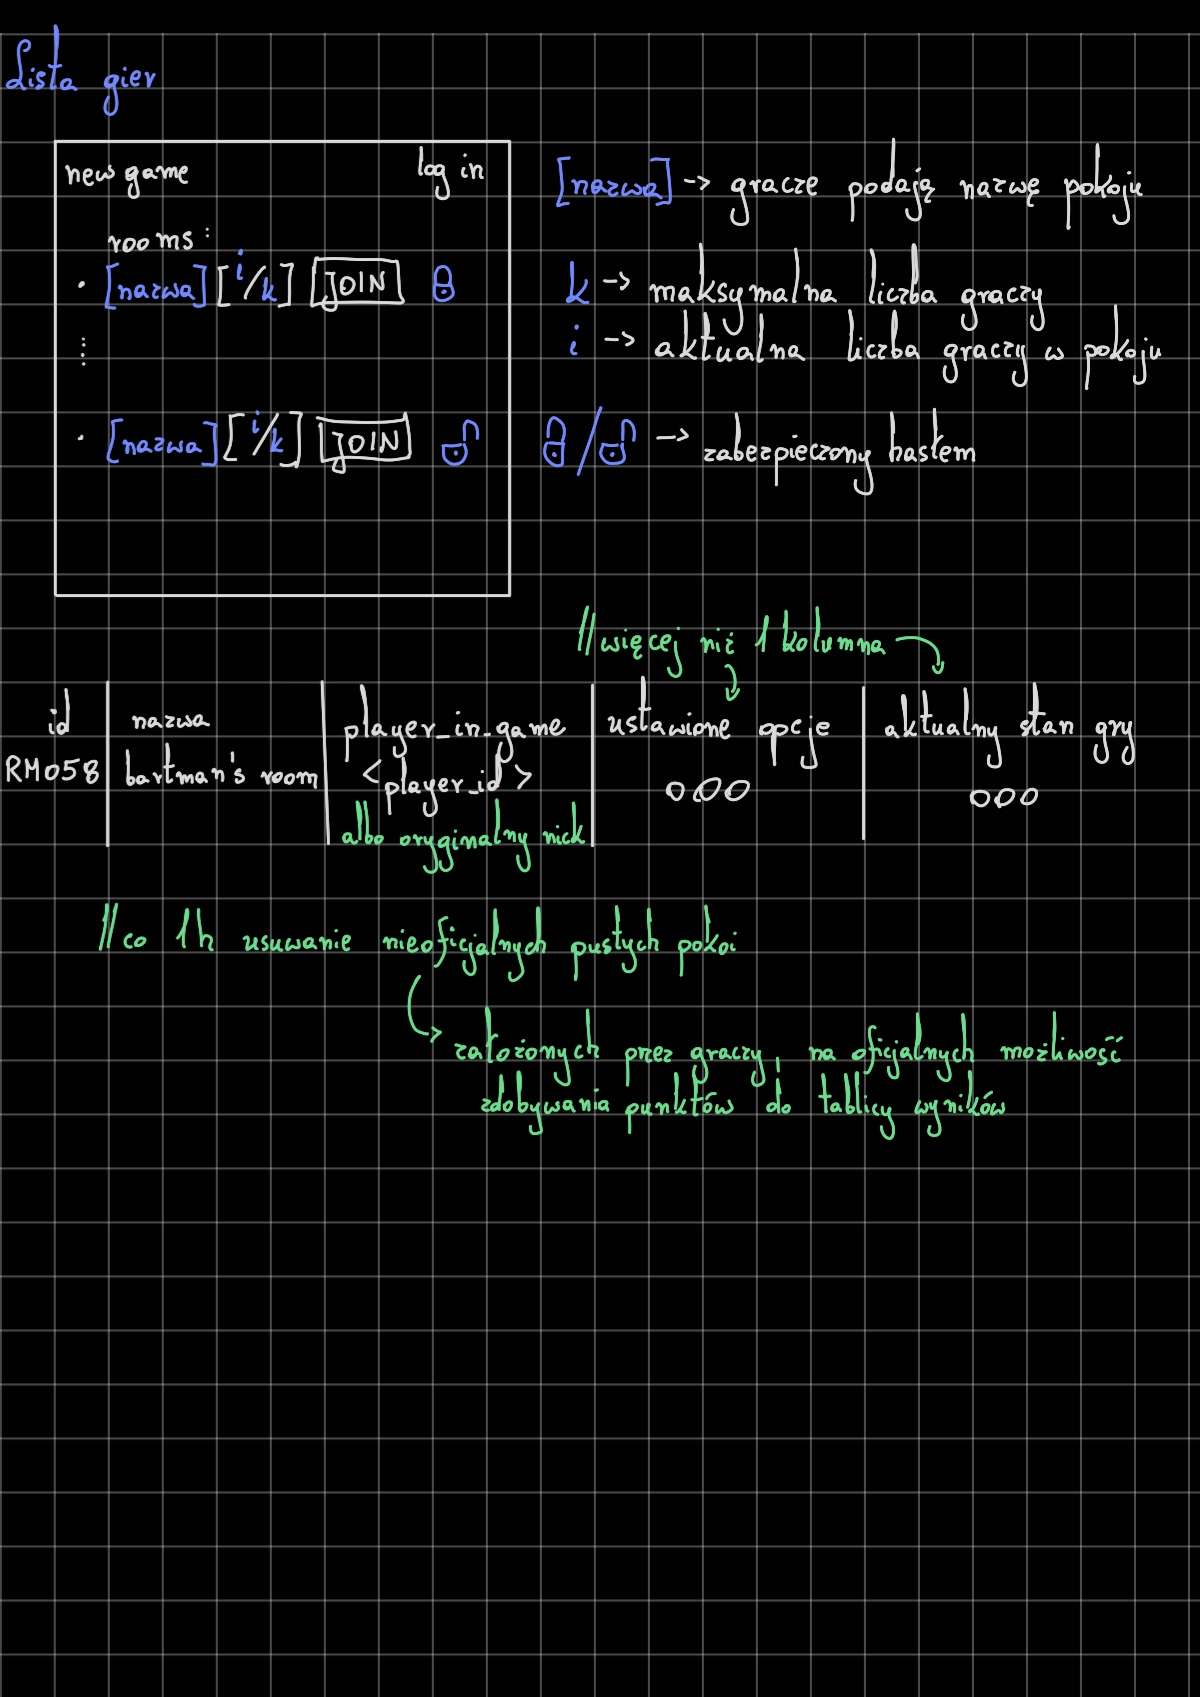 Lista gier
new game log in
rooms:
• [nazwa] [i/k] [JOIN]
⋮
• [nazwa] [i/k] [JOIN]
[nazwa] -> gracze podają nazwę pokoju
k -> maksymalna liczba graczy
i -> aktualna liczba graczy w pokoju
/ -> zabezpieczony hasłem
// więcej niż 1 kolumna
id | nazwa | player_in_game | ustawione opcje | aktualny stan gry
RM058 | bartman's room | <player_id> | ooo | ooo
albo oryginalny nick
// co 1h usuwanie nieoficjalnych pustych pokoi
-> założonych przez graczy, na oficjalnych możliwość
zdobywania punktów do tablicy wyników